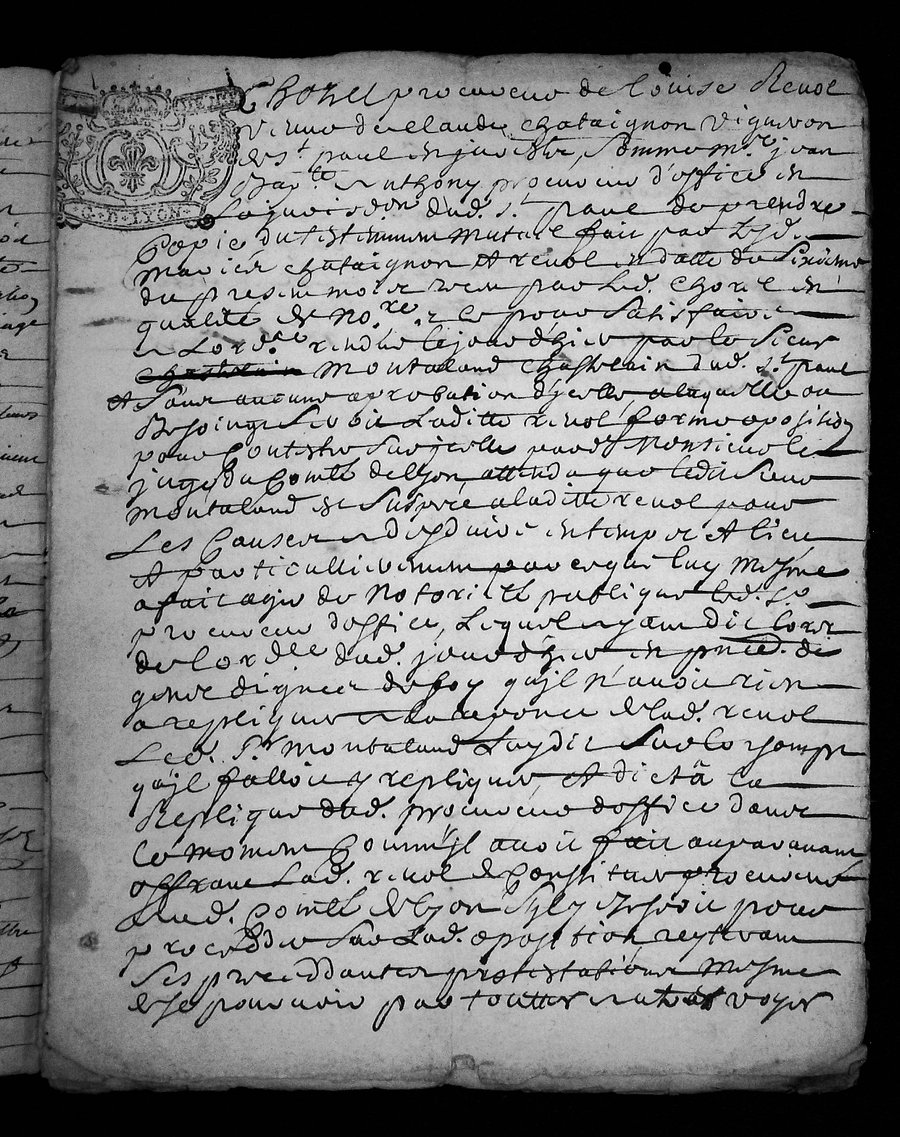 G. D. LYON
Chorel procureur de Louise Revol
veuve de Claude Chataignon vigneron
de St paul en jarestz, somme Me jean
Bapte Anthony procureur d'office en
la jurisdon dud. St paul de prendre
Copie du testament mutuel fait par lesd.
maries Chataignon et revol en datte du sixieme
du present mois receu par led. Chorel en
qualité de Nore et ce pour satisfaire
a Lordce rendue le jourd'huy par le sieur
montaland Chastelain dud. St paul
et sans aucune aprobation d'ycelle a laquelle ou
Besoing seroit Laditte revol forme oposition
pour Contester sur jcelle pardt Monsieur le
juge du Comté de Lyon attendu que ledit sieur
montaland est suspec a laditte revol pour
Les Causes a deduire en temps et lieu
et particullierement parcequil luy mesme
a fait agir de Notorieté publique led. Sr
procureur d'office, Lequel ayant dit lors
de lordce dud. jourd'huy en prnce de
gens dignes de foy qu'jl n'avoit rien
a repliquer a la reponce de lad. revol
Led. Sr montaland Luy dit sur lors
qu'jl falloit y repliquer, et dicta la
Replique dud. procureur d'office dans
le moment Comm'jl avoit fait auparavant
offrant Lad. revol de Constituer procureur
aud. Comté de Lyon sy y eschoit pour
proceder sur Lad. oposition reyterant
ses preceddantes protestations mesme
de se pourvoir par touttes autres voyes